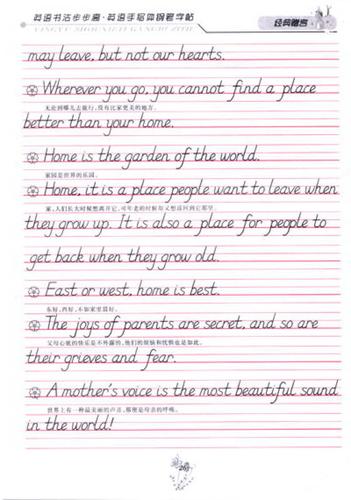 英语书法步步高·英语手写体钢笔字帖
经典赠言
may leave, but not our hearts.
Wherever you go, you cannot find a place
无论到哪儿去旅行,没有比家更美的地方。
better than your home.
Home is the garden of the world.
家园是世界的乐园。
Home, it is a place people want to leave when
家,人们长大时候想离开它,可年老的时候却又想返回到它那里。
they grow up. It is also a place for people to
get back when they grow old.
East or west, home is best.
东好,西好,不如家里最好。
The joys of parents are secret, and so are
父母心底的快乐是不外露的,他们的烦恼和忧惧也是如此。
their grieves and fear.
A mother's voice is the most beautiful sound
世界上有一种最美丽的声音,那便是母亲的呼唤。
in the world!
26